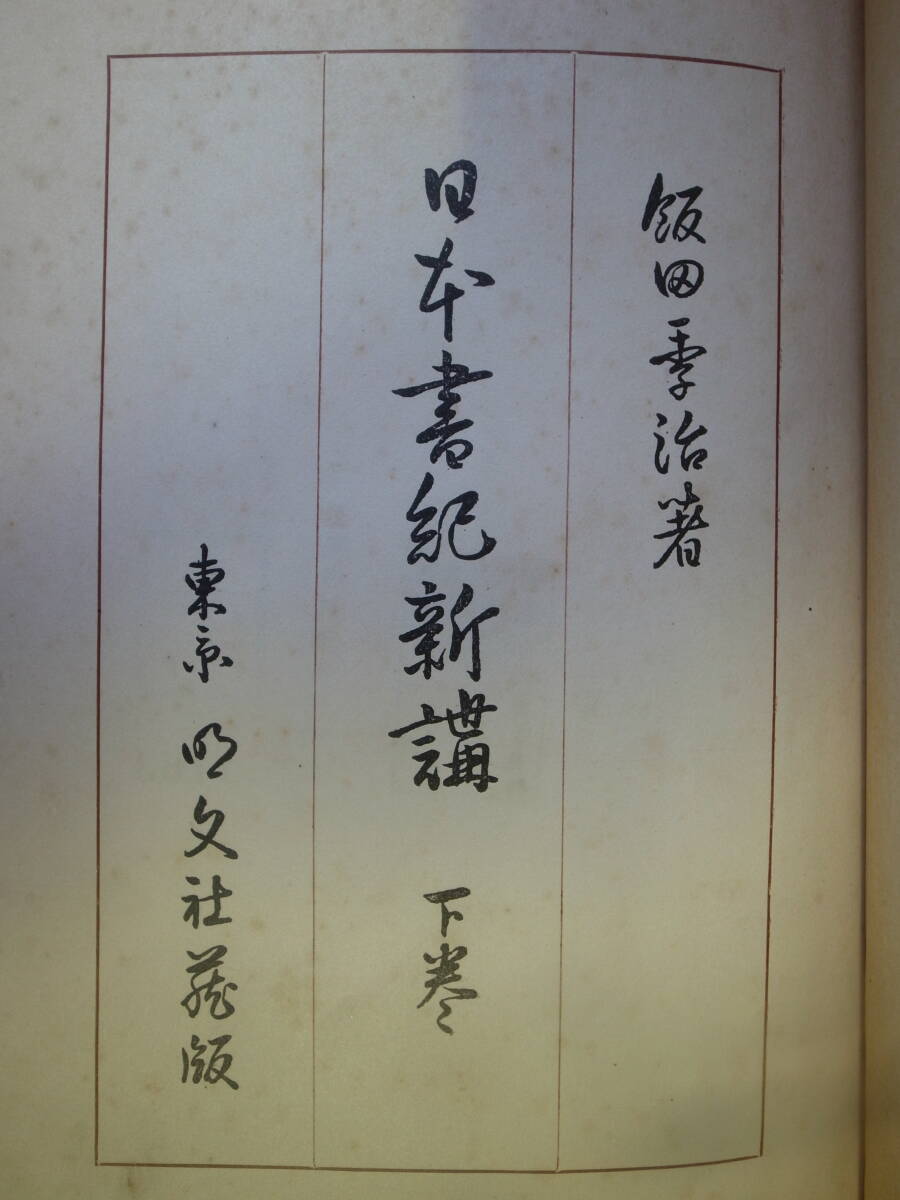 飯田季治著
日本書紀新講 下巻
東京 明文社蔵版